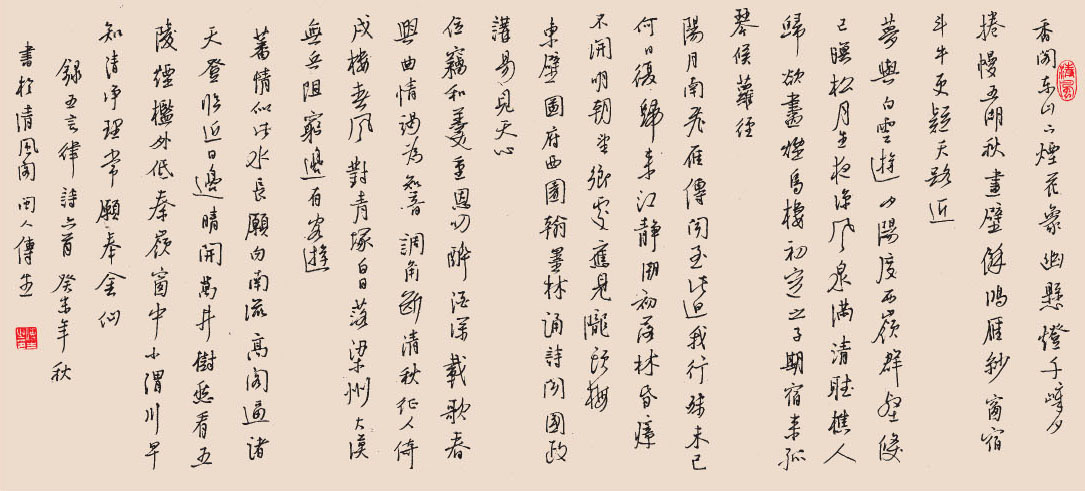 香阁东山下煙花象幽懸燈千嶂夕
捲幔五湖秋畫壁餘鴻雁紗窗宿
斗牛更疑天路近
夢與白雲遊夕陽度西嶺群壑倏
已暝松月生夜涼風泉滿清聽樵人
歸欲盡煙鳥棲初定之子期宿來孤
琴候蘿徑
陽月南飛雁傳聞至此迴我行殊未已
何日復歸來江靜潮初落林昏瘴
不開明朝望鄉處應見隴頭梅
東壁圖府西園翰墨林誦詩聞國政
講易見天心
位竊和羹重恩叨醉酒深載歌春
興曲情竭為知音調角斷清秋征人倚
戍樓春風對青塚白日落梁州大漠
無兵阻窮邊有客遊
蕃情似此水長願向南流高閣逼諸
天登臨近日邊晴開萬井樹愁看五
陵煙檻外低秦嶺窗中小渭川早
知清净理常願奉金仙
錄五言律詩六首癸未年秋
書於清風閣閑人傳生